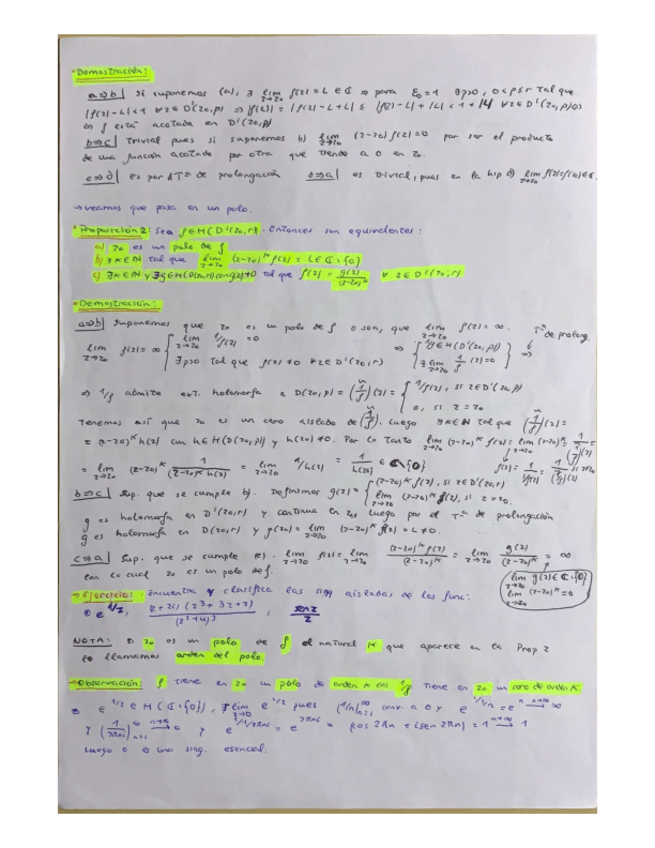 *Demostración:
a⇒b| Si suponemos (a), ∃ lim z→z₀ f(z)=L∈ℂ ⇒ para ε₀=1 ∃ρ>0, 0<ρ≤r tal que
|f(z)-L|<1 ∀z∈D'(z₀,ρ) ⇒ |f(z)|=|f(z)-L+L| ≤ |f(z)-L|+|L|<1+|L| ∀z∈D'(z₀,ρ)
⇒ f está acotada en D'(z₀,ρ)
b⇒c| Trivial pues si suponemos b) lim z→z₀ (z-z₀)f(z)=0 por ser el producto
de una función acotada por otra que tiende a 0 en z₀.
c⇒d| es por el Tª de prolongación d⇒a| es trivial, pues en la hip d) lim z→z₀ f(z)=f(z₀)∈ℂ.
→ veamos que pasa en un polo.
*Proposición 2: Sea f∈H(D'(z₀,r)). Entonces son equivalentes:
a) z₀ es un polo de f
b) ∃k∈ℕ tal que lim z→z₀ (z-z₀)ᵏf(z)=L∈ℂ\{0}
c) ∃k∈ℕ y ∃g∈H(D(z₀,r)) con g(z₀)≠0 tal que f(z)=g(z)/(z-z₀)ᵏ ∀z∈D'(z₀,r)
*Demostración:
a⇒b| Suponemos que z₀ es un polo de f o sea, que lim z→z₀ f(z)=∞. Tª de prolong.
lim z→z₀ f(z)=∞ { lim z→z₀ 1/f(z)=0 ; ∃ρ>0 tal que f(z)≠0 ∀z∈D'(z₀,r) ⇒ { 1/f∈H(D'(z₀,ρ)) ; ∃ lim z→z₀ 1/f(z)=0 } ⇒
⇒ 1/f admite ext. holomorfa a D(z₀,ρ) = (1/f)~(z)= { 1/f(z), si z∈D'(z₀,ρ) ; 0, si z=z₀
Tenemos así que z₀ es un cero aislado de (1/f)~. Luego ∃k∈ℕ tal que (1/f)~(z)=
=(z-z₀)ᵏh(z) con h∈H(D(z₀,ρ)) y h(z₀)≠0. Por lo tanto lim z→z₀ (z-z₀)ᵏf(z)= lim z→z₀ (z-z₀)ᵏ 1/(1/f)~(z) =
= lim z→z₀ (z-z₀)ᵏ 1/((z-z₀)ᵏh(z)) = lim z→z₀ 1/h(z) = 1/h(z₀) ∈ ℂ\{0} f(z)=1/(1/f(z))=1/(1/f)~(z) si z≠z₀
b⇒c| Sup. que se cumple b). Definimos g(z)= { (z-z₀)ᵏf(z), si z∈D'(z₀,r) ; lim z→z₀ (z-z₀)ᵏf(z), si z=z₀.
g es holomorfa en D'(z₀,r) y continua en z₀, luego por el Tª de prolongación
g es holomorfa en D(z₀,r) y g(z₀)= lim z→z₀ (z-z₀)ᵏf(z)=L≠0.
c⇒a| Sup. que se cumple c). lim z→z₀ f(z)= lim z→z₀ (z-z₀)ᵏf(z)/(z-z₀)ᵏ = lim z→z₀ g(z)/(z-z₀)ᵏ = ∞
con lo cual z₀ es un polo de f.
lim z→z₀ g(z)∈ℂ\{0}
lim z→z₀ (z-z₀)ᵏ=0
→Ejercicio: encuentra y clasifica las sing aisladas de las func:
e^{1/z}; (z+2i)(z³+3z+2)/(z²+4)³ ; sen z/z
NOTA: Si z₀ es un polo de f el natural k que aparece en la Prop 2
lo llamamos orden del polo.
→Observación: f tiene en z₀ un polo de orden k ⇔ 1/f tiene en z₀ un cero de orden k.
e^{1/z}∈H(ℂ\{0}), ∄ lim z→0 e^{1/z} pues (1/n)ₙ₌₁^∞ conv. a 0 y e^{1/1/n}=eⁿ n→∞ → ∞
y (1/2πni)ₙ₌₁^∞ n→∞ → 0 y e^{1/1/2πni}=e^{2πni}=(cos 2πn+i sen 2πn)=1 n→∞ → 1
Luego 0 es una sing. esencial.